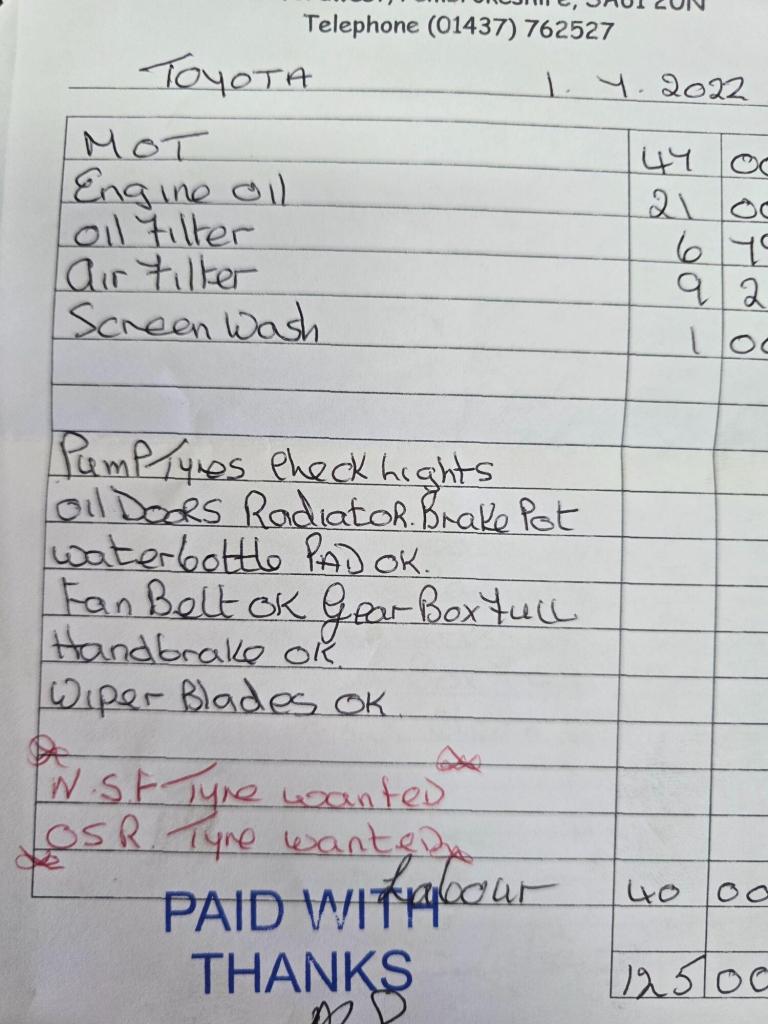 Pembrokeshire, SA61 2UN
Telephone (01437) 762527
TOYOTA 1. 4. 2022
MOT 47 00
Engine oil 21 00
oil Filter 6 79
air Filter 9 2
Screen Wash 1 00
Pump Tyres Check Lights
oil Doors Radiator. Brake Pot
waterbottle PAD OK.
Fan Belt OK Gear Box Full
Handbrake OK.
Wiper Blades OK.
N.S.F Tyre wanted
OSR. Tyre wanted
Labour 40 00
PAID WITH
THANKS
125 00